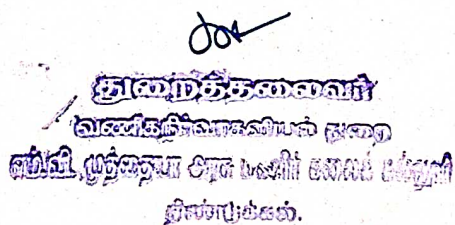 துறைத்தலைவர்
வணிகநிர்வாகவியல் துறை
எம்.வி. முத்தையா அரசு மகளிர் கலைக் கல்லூரி
திண்டுக்கல்.